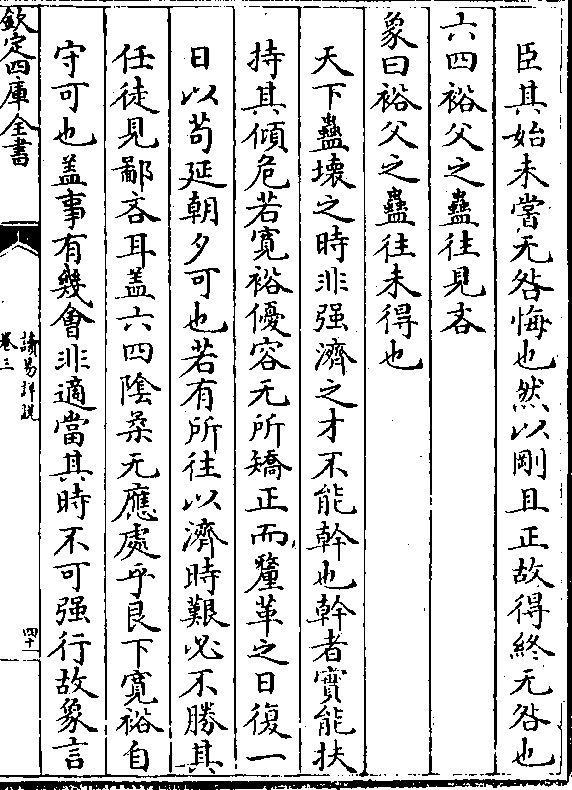 臣其始未嘗无咎悔也然以剛且正故得終无咎也
六四裕父之蠱往見吝
象曰裕父之蠱往未得也
天下蠱壊之時非强濟之才不能幹也幹者實能扶
持其傾危若寛裕優容无所矯正而釐革之日復一
日以苟延朝夕可也若有所往以濟時艱必不勝其
任徒見鄙吝耳盖六四陰柔无應處乎艮下寛裕自
守可也盖事有幾會非適當其時不可强行故象言
欽定四庫全書
讀易詳説
卷三
四十